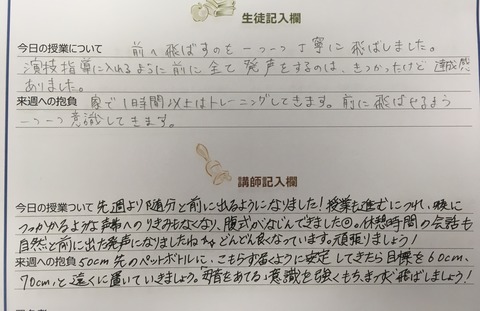 生徒記入欄
今日の授業について 前へ飛ばすのを一つ一つ丁寧に飛ばしました。
演技指導に入れるように前に全て発声をするのは、きつかったけど達成感
ありました。
来週への抱負 家で1時間以上はトレーニングしてきます。前に飛ばせるよう
一つ一つ意識してきます。
講師記入欄
今日の授業について 先週より随分と前に出るようになりました!授業も進むにつれ、喉に
つっかかるような声帯へのりきみもなくなり、腹式がなじんできました。休憩時間の会話も
自然と前に出た発声になりましたね どんどん良くなっています。頑張りましょう!
来週への抱負 50cm先のペットボトルに、こもらず届くように安定してきたら目標を60cm、
70cm、と遠くに置いていきましょう。母音をあてる意識を強くもち、まっすぐ飛ばしましょう!